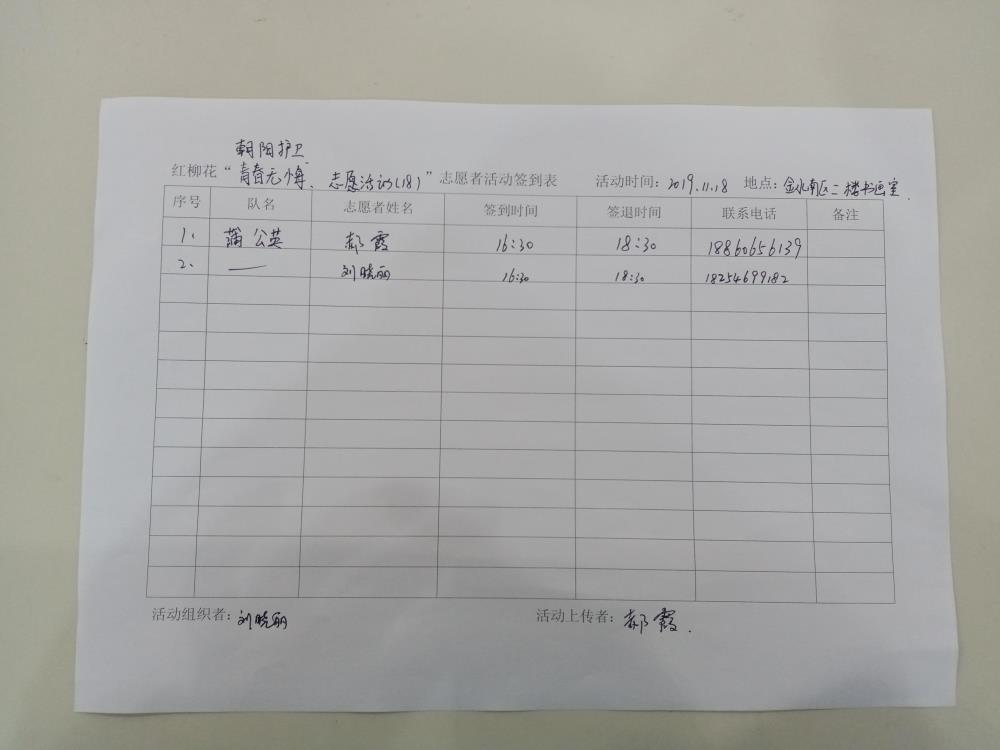 朝阳护卫
红柳花“青春无悔、志愿活动(18)”志愿者活动签到表 活动时间：2019.11.18 地点：金水南区二楼书画室.
序号 队名 志愿者姓名 签到时间 签退时间 联系电话 备注
1、 蒲公英 郝霞 16:30 18:30 18860656139
2、 — 刘晓丽 16:30 18:30 18254699182
活动组织者：刘晓丽 活动上传者：郝霞.